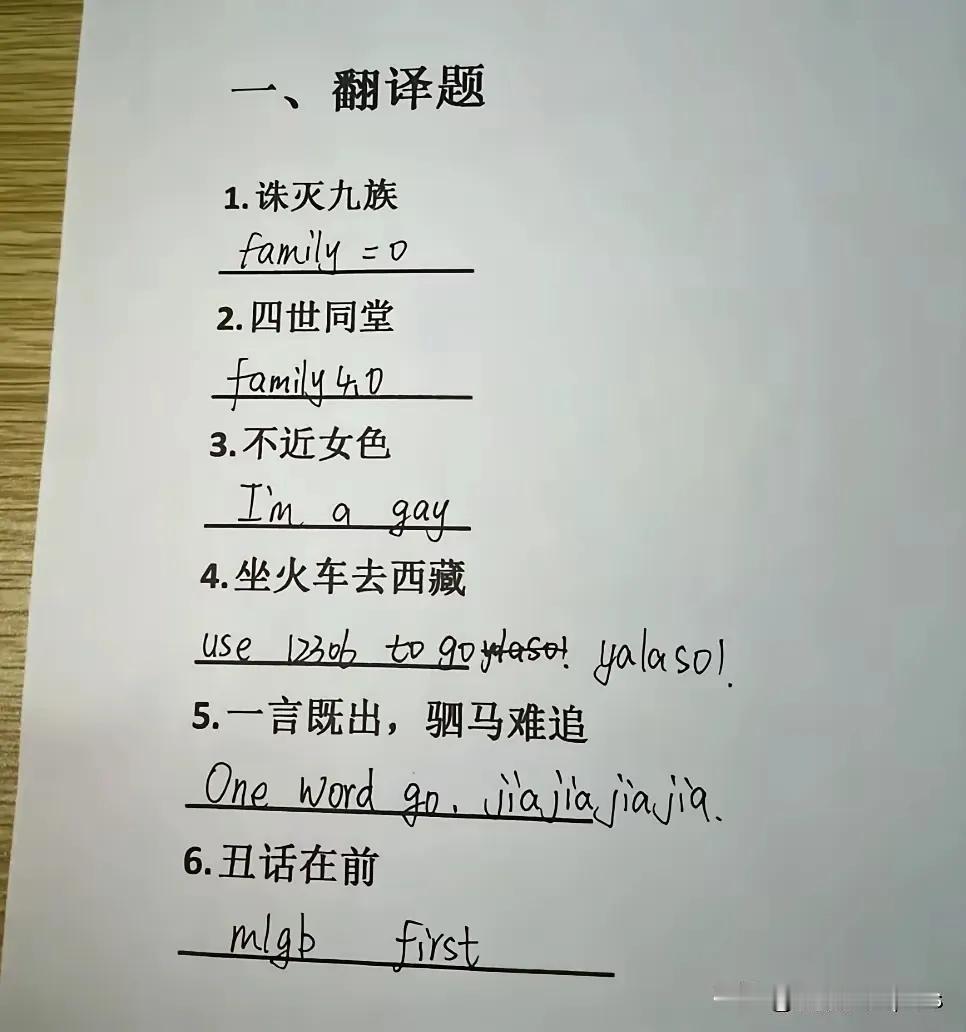 一、翻译题
1. 诛灭九族
family = 0
2. 四世同堂
family 4.0
3. 不近女色
I'm a gay
4. 坐火车去西藏
use 12306 to go ylaso! yalaso!.
5. 一言既出，驷马难追
One word go. jiàjiàjiàjià.
6. 丑话在前
mlgb first